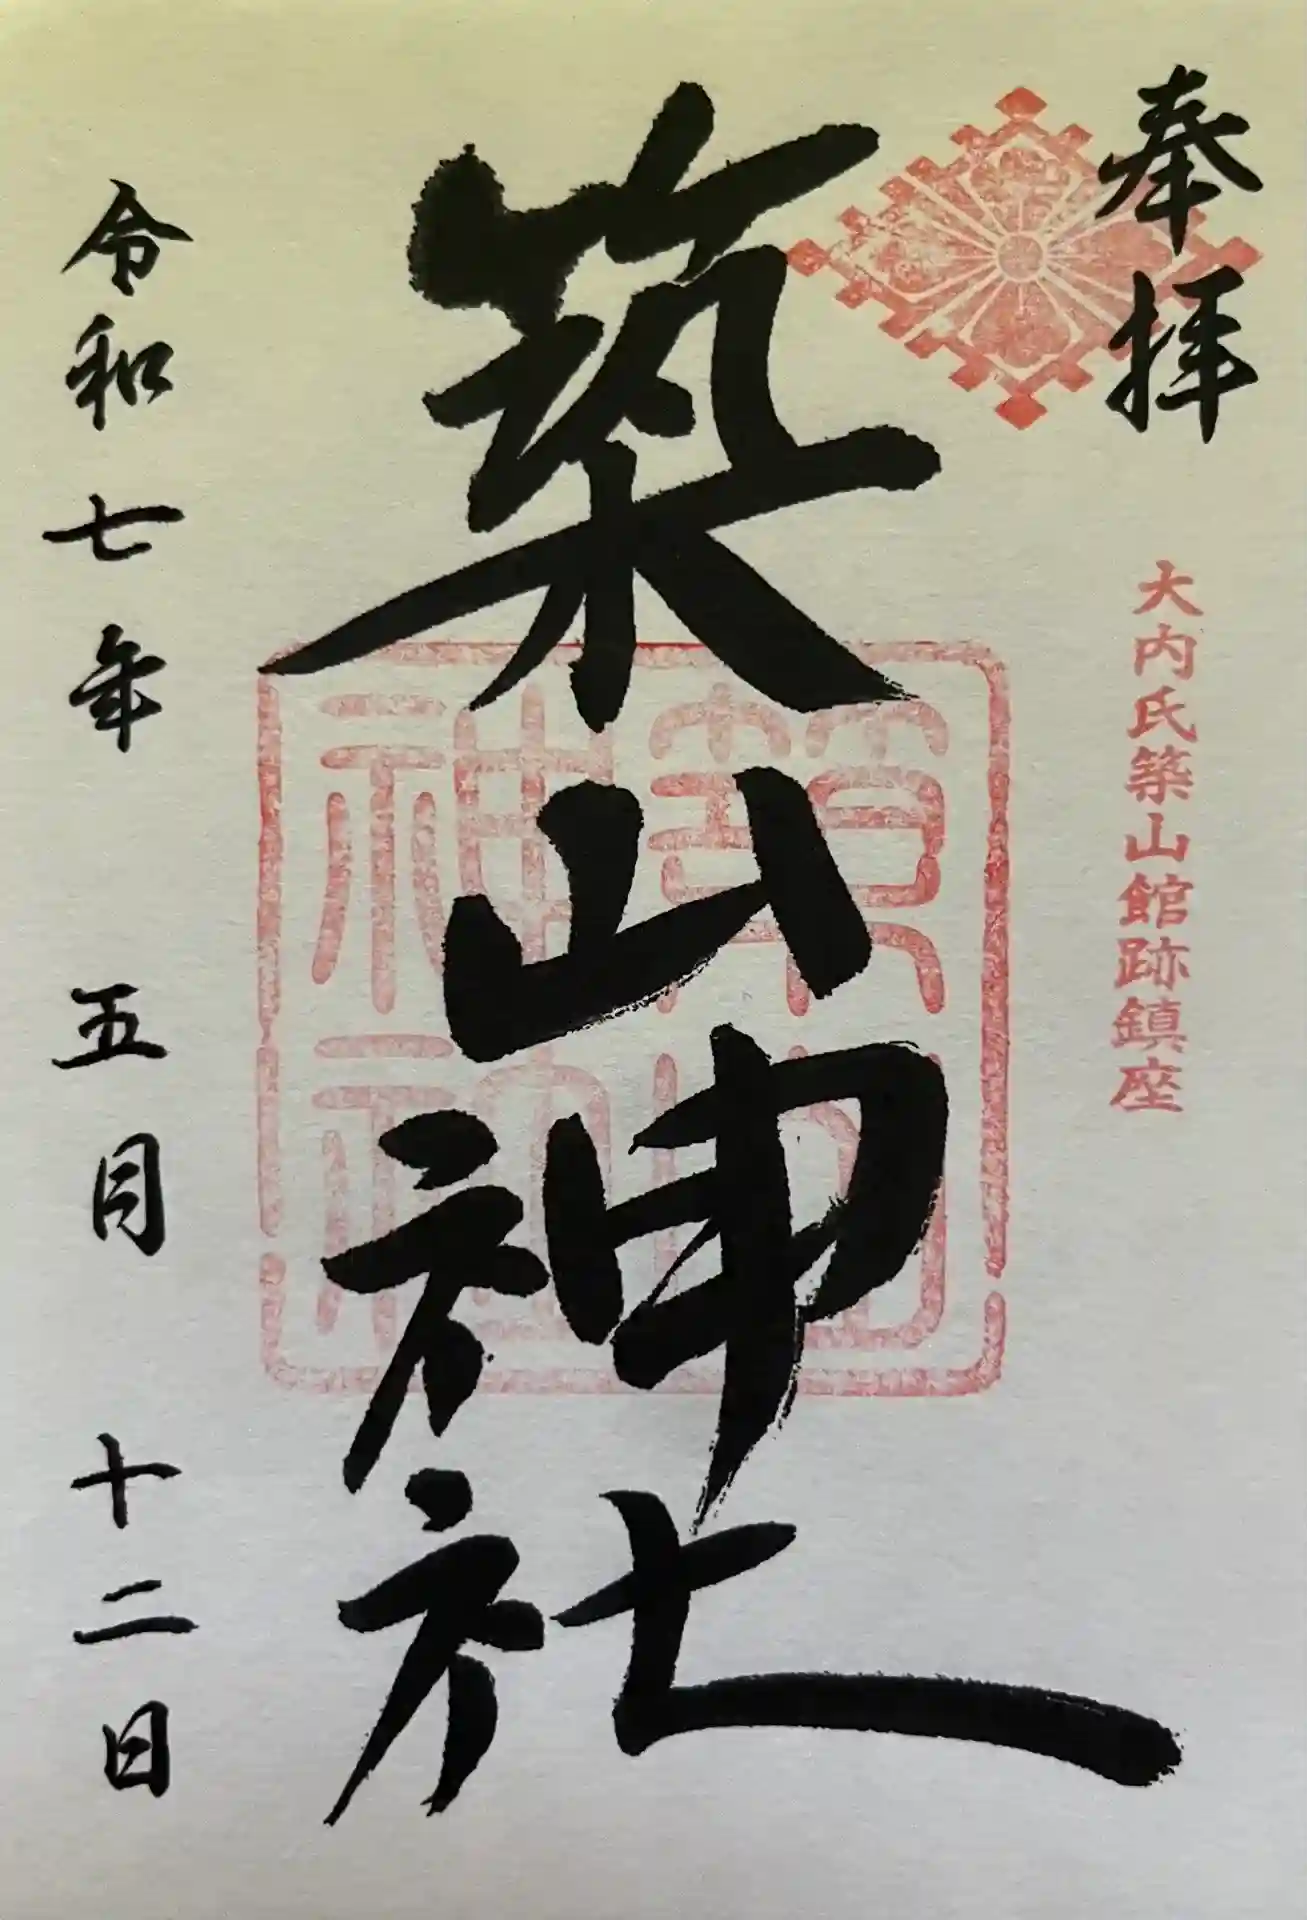 奉拝
大内氏築山館跡鎮座
築山神社
築山
神社
令和七年 五月 十二日